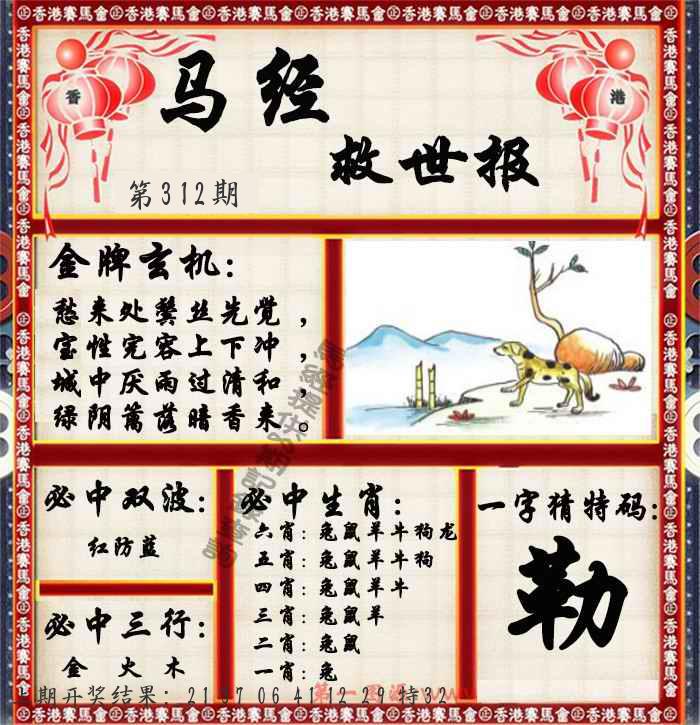 香港賽馬會
香
港
马经
救世报
第312期
金牌玄机:
愁来处鬓丝先觉，
宝性完容上下冲，
城中厌雨过清和，
绿阴篱落暗香来。
必中双波:
红防蓝
必中三行:
金 火 木
必中生肖:
六肖: 兔鼠羊牛狗龙
五肖: 兔鼠羊牛狗
四肖: 兔鼠羊牛
三肖: 兔鼠羊
二肖: 兔鼠
一肖: 兔
一字猜特码:
勒
期开奖结果: 21 37 06 41 12 29 特32